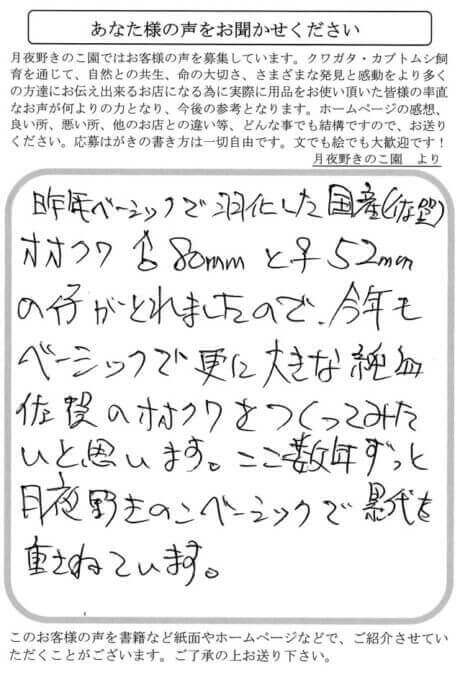 あなた様の声をお聞かせください
月夜野きのこ園ではお客様の声を募集しています。クワガタ・カブトムシ飼
育を通じて、自然との共生、命の大切さ、さまざまな発見と感動をより多く
の方達にお伝え出来るお店になる為に実際に用品をお使い頂いた皆様の率直
なお声が何よりの力となり、今後の参考となります。ホームページの感想、
良い所、悪い所、他のお店との違い等、どんな事でも結構ですので、お送り
ください。応募はがきの書き方は一切自由です。文でも絵でも大歓迎です！
月夜野きのこ園　より
昨年ベーシックで羽化した国産(佐賀)
オオクワ ♂80mmと♀52mm
の仔がとれましたので、今年も
ベーシックで更に大きな純血
佐賀のオオクワをつくってみた
いと思います。ここ数年ずっと
月夜野きのこベーシックで累代を
重さねています。
このお客様の声を書籍など紙面やホームページなどで、ご紹介させてい
ただくことがございます。ご了承の上お送り下さい。